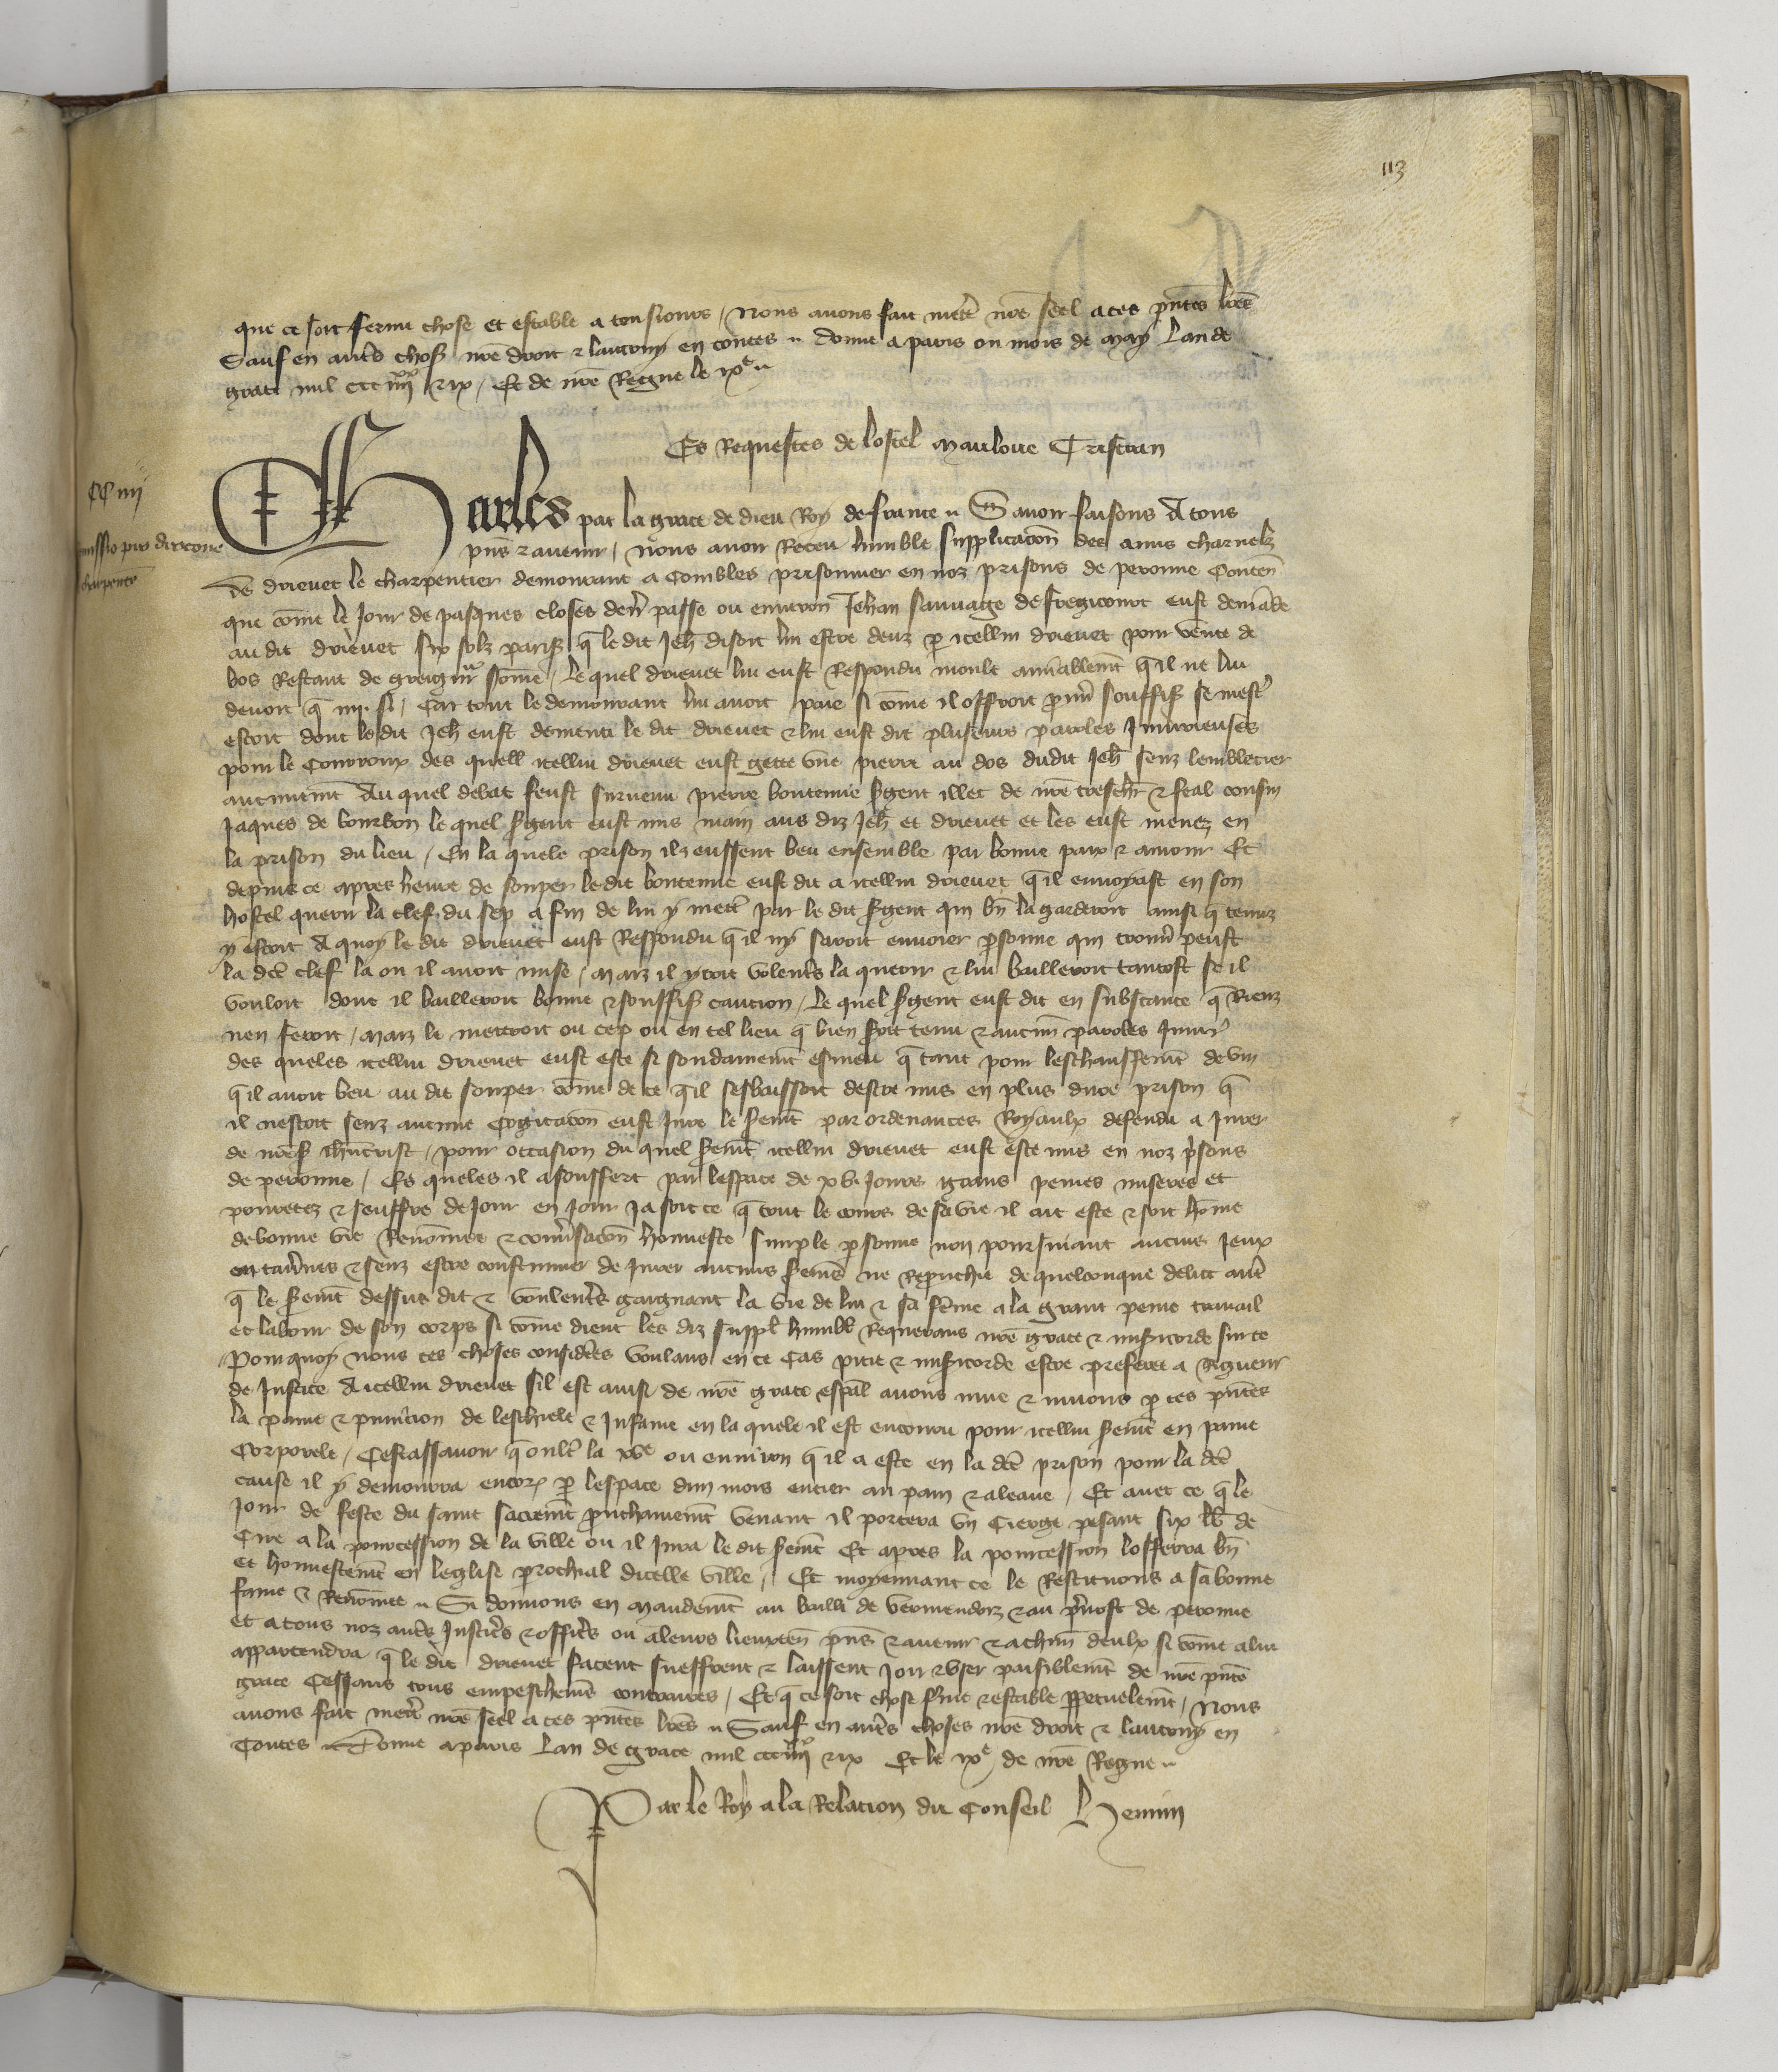 113
que ce soit ferme chose et estable a tousiours / Nous auons fait mettr nre seel a ces pntes lres
Sauf en autres chos nre droit & lautruy en toutes donne a paris ou mois de May Lan de
grace mil ccc iiij xx & ix / Et de nre Regne le ixe
Es Requestes de lostel Mauloue Tristan
CC iiij
missio pro droeone
charpent
Charles par la grace de dieu Roy de france Sauoir faisons A tous
pns & auenir / nous auoir Receu humble supplicacon des amis charnelz
de drieuet le charpentier demourant a Combles prisonnier en noz prisons de peronne Conten
que come le Jour de pasques closes derr passe ou enuiron Jehan sauuage de fregicourt eust demade
au dit drieuet six solz paris q le dit Jeh disoit lui estre deuz p icellui drieuet pour vente de
bos Restant de greign some / le quel drieuet lui eust Respondu moult amiablemt q il ne lui
deuoit q iiij. s / Car tout le demourant lui auoit paie si come il offroit prouu souffis se mest
estoit dont le dit Jeh eust dementi le dit drieuet & lui eust dit pluseurs paroles Iniurieuses
pour le Courroux des quell icellui drieuet eust gette vne pierre au dos dudit Jeh senz lemblecier
aucunemt Au quel debat feust suruenu pierre boutemie sgent illec de nre treschr & feal cousin
Jaques de bourbon le quel sgent eust mis main aus diz Jeh et drieuet et les eust menez en
la prison du lieu / En la quele prison ilz eussent beu ensemble par bonne paix & amour Et
depuis ce apres heure de souper le dit boutemie eust dit a icellui drieuet q il enuoyast en son
hostel querir la clef du sep a fin de lui y mettr par le dit sgent qui bn la garderoit ainsi q tenuz
y estoit A quoy le dit drieuet eust Respondu q il ny sauoit enuoier psonne qui trouu peust
la dce clef la ou il auoit mise / Maiz il yroit volentrs la querir & lui bailleroit tantost se il
vouloit dont il bailleroit bonne & souffis caucion / le quel sgent eust dit en substance q Riens
nen feroit / maiz le mettroit ou cep ou en tel lieu q bien soit tenu & aucun paroles Iniur
des queles icellui drieuet eust este si soudainemt esmeu q tant pour leschauffemt de vin
q il auoit beu au dit souper come de ce q il sesbaissoit destre mis en plus dure prison q
il nestoit senz aucune Cogitacon eust Iure le semt par ordenances Royaulx defendu a Iurer
de nres ihucrist / pour occasion du quel semt icellui drieuet eust este mis en noz prisons
de peronne / Es queles il a souffert par lespace de xv. Jours grans peines miseres et
pouretez & seuffre de Jour en Jour Ja soit ce q tout le cours de sa vie il ait este & soit home
de bonne vie Renomee & conusacon honneste simple psonne non poursuiant aucuns Jeux
en tauernes & senz estre coustumier de Iurer aucuns semes ne Repruchie de quelconque delict autr
q le semt dessus dit & voulentrs gaignant la vie de lui & sa feme a la grant peine trauail
et labour de son corps si come dient les diz suppl humbl Requerans nre grace & misicorde sur ce
Pour quoy nous ces choses consideres voulans en ce Cas pitie & misicorde estre preferee a Rigueur
de Justice A icellui drieuet sil est ainsi de nre grace espal auons mue & muons p ces pntes
la peine & punicion de leschiele & Infame en la quele il est encouru pour icellui semt en peine
Corporele / Cest assauoir q oultr la xve ou enuiron q il a este en la dce prison pour la dce
cause il y demourra encor p lespace dun mois entier au pain & a leaue / Et auec ce q le
Jour de feste du saint sacremt pruchainemt venant il portera vn Cierge pesant six lb de
Cire a la pourcession de la ville ou il Jura le dit semt Et apres la pourcession lofferra bn
et honnestemt en leglise parrochial dicelle ville / Et moyennant ce le Restituons a sa bonne
fame & Renomee Si donnons en Mandemt au bailli de vermendoiz & au preuost de peronne
et a tous noz autrs Justicrs & officrs ou a leurs lieuxten pns & auenir & a chun deulx si come a lui
appartendra q le dit drieuet facent sueffrent & laissent joir & vser paisiblemt de nre pnte
grace Cessans tous empeschemes contraires / Et q ce soit chose ferme & estable ppetuelemt / Nous
auons fait mettr nre seel a ces pntes lres Sauf en autrs choses nre droit & lautruy en
Toutes Donne a paris Lan de grace mil ccc iiij xx & ix Et le ixe de nre Regne
Par le Roy a la Relacion du Conseil Hemin